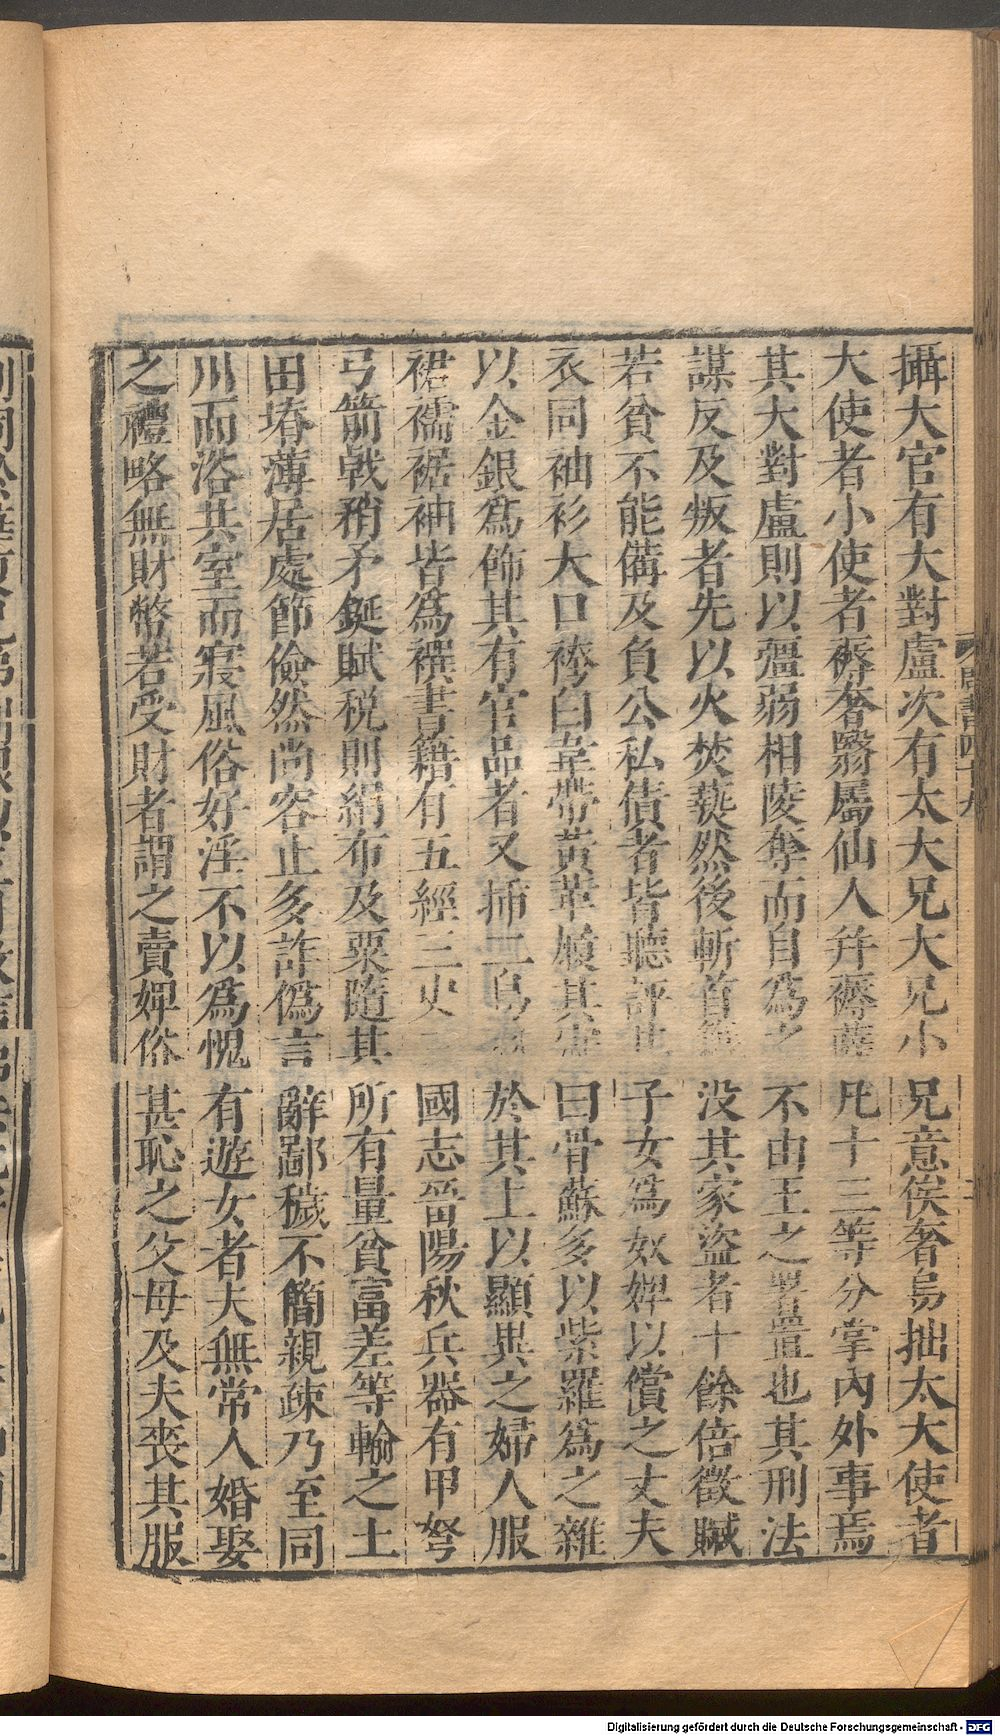 攝大官有大對盧次有太大兄大兄小兄意侯奢烏拙太大使者
大使者小使者褥奢翳屬仙人幷褥薩凡十三等分掌內外事焉
其大對盧則以彊弱相陵奪而自為之不由王之署置也其刑法
謀反及叛者先以火焚爇然後斬首籍没其家盜者十餘倍徵贓
若貧不能備及負公私債者皆聽評其子女為奴婢以償之丈夫
衣同袖衫大口袴白韋帶黃革履其冠曰骨蘇多以紫羅為之雜
以金銀為飾其有官品者又揷二鳥羽於其上以顯異之婦人服
裙襦裾袖皆為襈書籍有五經三史三國志晉陽秋兵器有甲弩
弓箭戟矟矛鋋賦税則絹布及粟隨其所有量貧富差等輸之土
田塉薄居處節儉然尚容止多詐僞言辭鄙穢不簡親疎乃至同
川而浴共室而寢風俗好淫不以為愧有遊女者夫無常人婚娶
之禮略無財幣若受財者謂之賣婢俗甚恥之父母及夫喪其服
周書四十九
二
Digitalisierung gefördert durch die Deutsche Forschungsgemeinschaft - DFG